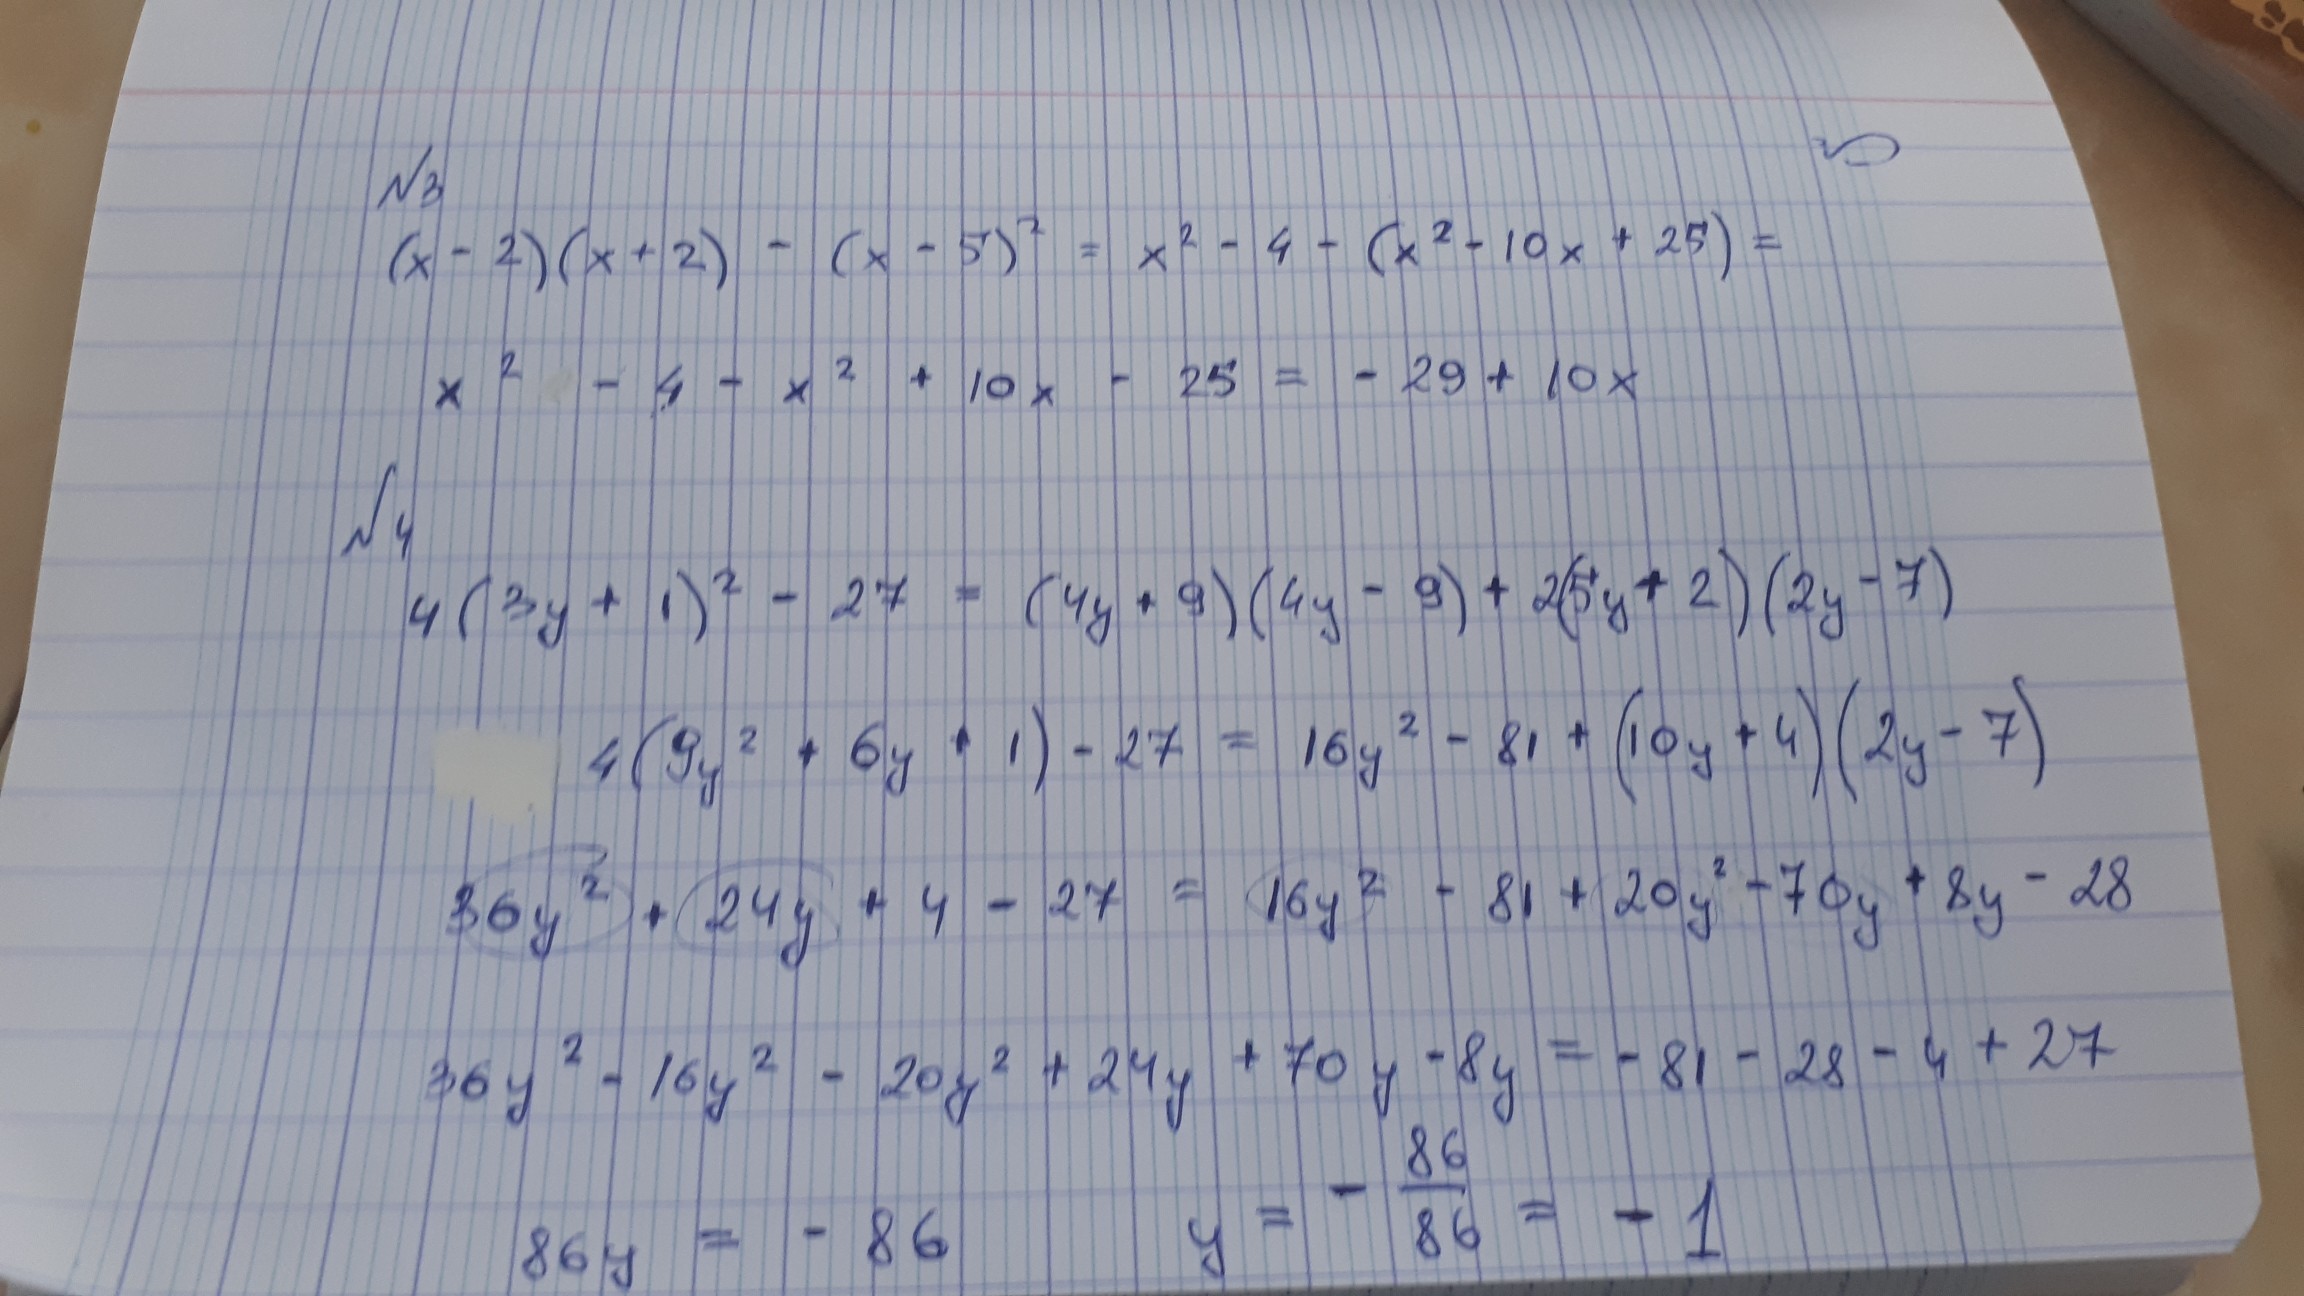 №3
(x - 2)(x + 2) - (x - 5)² = x² - 4 - (x² - 10x + 25) =
x² - 4 - x² + 10x - 25 = - 29 + 10x
№4
4(3y + 1)² - 27 = (4y + 9)(4y - 9) + 2(5y + 2)(2y - 7)
4(9y² + 6y + 1) - 27 = 16y² - 81 + (10y + 4)(2y - 7)
36y² + 24y + 4 - 27 = 16y² - 81 + 20y² - 70y + 8y - 28
36y² - 16y² - 20y² + 24y + 70y - 8y = - 81 - 28 - 4 + 27
86y = - 86 y = - 86/86 = - 1